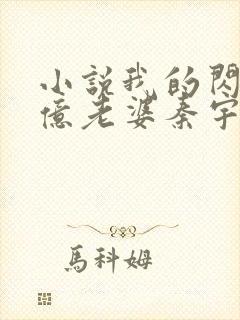 小說我的閃
億老婆秦宇
馬科姆